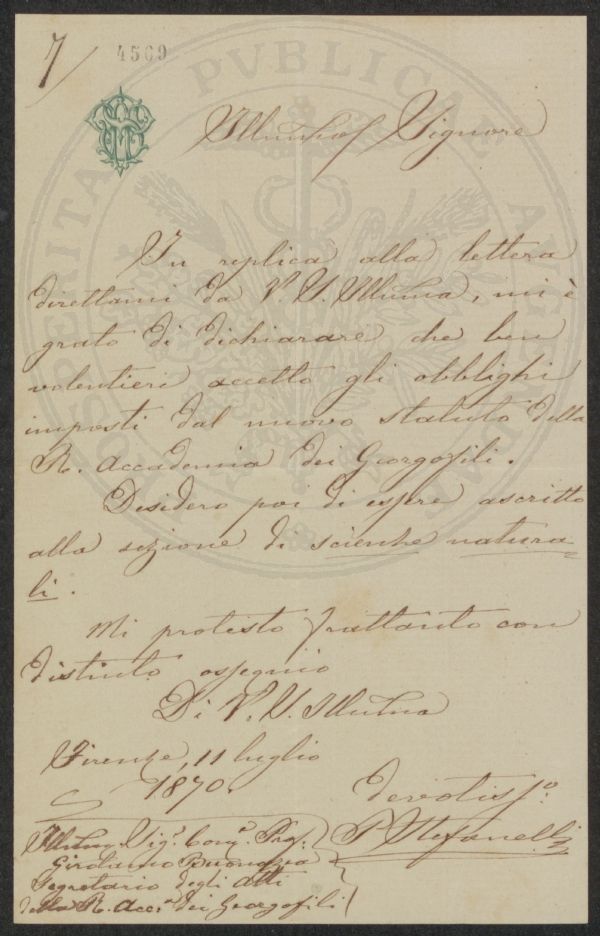 7/
4569
PROSPERITATI PVBLICAE AVGENDAE
Illustriss Signore
In replica alla lettera
direttami da V. S. Illma, mi è
grato di dichiarare che ben
volentieri accetto gli obblighi
imposti dal nuovo statuto della
R. Accademia dei Georgofili.
Desidero poi di essere ascritto
alla sezione di scienze natura=
li.
Mi protesto frattanto con
distinto ossequio
Di V. S. Illma
Firenze, 11 luglio
1870.
devotisso.
P. Stefanelli
Illmo. Sigr. Comre. Prof.
Girolamo Buonazia
Segretario degli Atti
della R. Acca. dei Georgofili